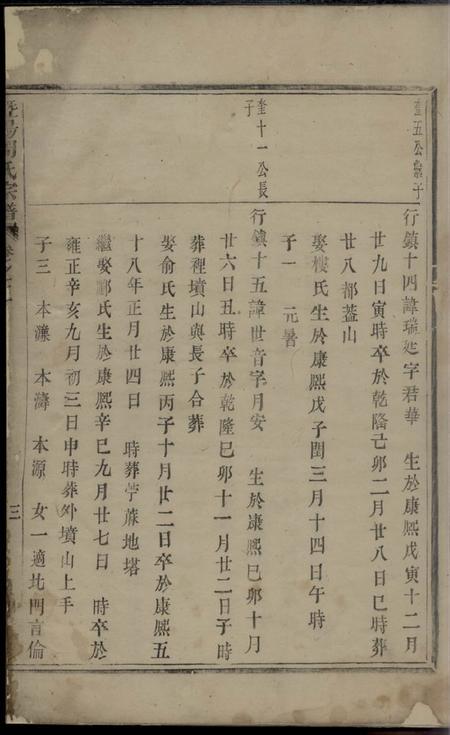 奎五公繼子
行鎮十四諱瑞延字君華 生於康熙戊寅十二月
廿九日寅時卒於乾隆己卯二月廿八日巳時葬
廿八都蓋山
娶樓氏生於康熙戊子閏三月十四日午時
子一 元暑
奎十一公長子
行鎮十五諱世音字月安 生於康熙巳卯十月
廿六日丑時卒於乾隆巳卯十一月廿二日子時
葬裡墳山與長子合葬
娶俞氏生於康熙丙子十月廿二日卒於康熙五
十八年正月廿四日 時葬苧蔴地塔
繼娶酈氏生於康熙辛巳九月廿七日 時卒於
雍正辛亥九月初三日申時葬外墳山上手
子三 本濂 本濤 本源 女一適北門言倫
氏宗譜
三